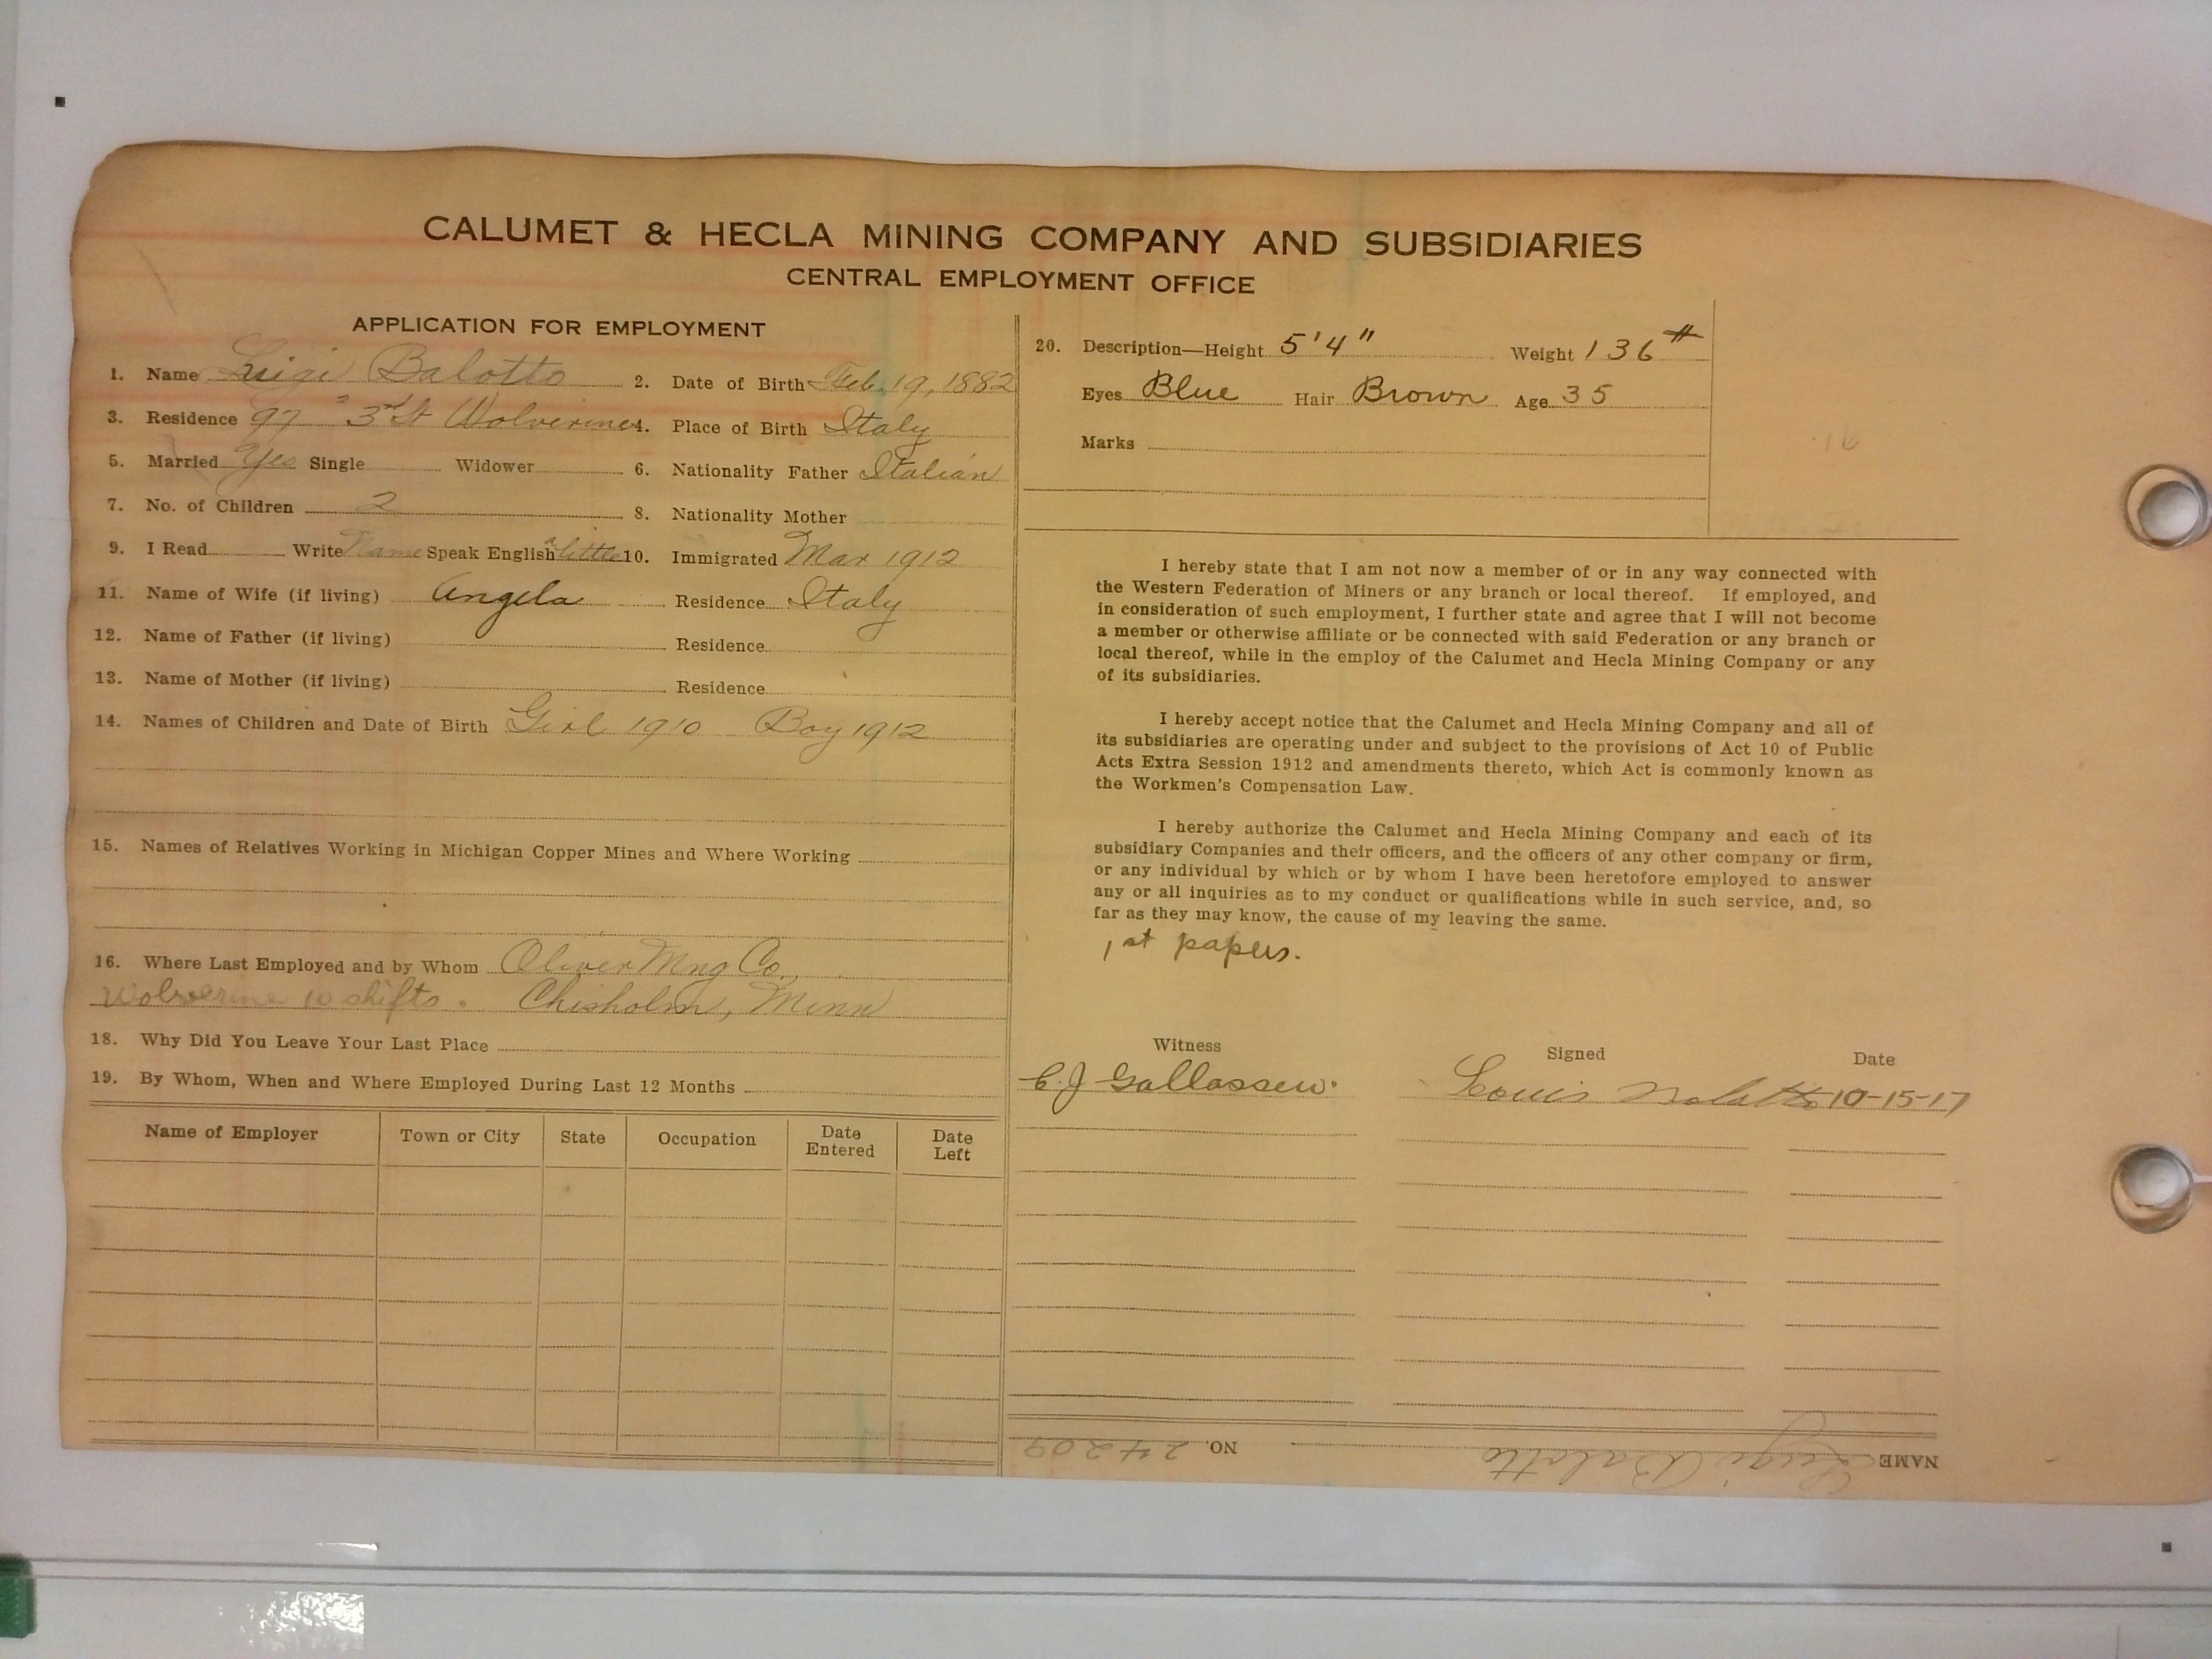 CALUMET & HECLA MINING COMPANY AND SUBSIDIARIES
CENTRAL EMPLOYMENT OFFICE
APPLICATION FOR EMPLOYMENT
1. Name Luigi Balotto 2. Date of Birth Feb. 19, 1882
3. Residence 97 3rd St Wolverine 4. Place of Birth Italy
5. Married Yes Single Widower 6. Nationality Father Italian
7. No. of Children 2 8. Nationality Mother
9. I Read Write Name Speak English a little 10. Immigrated Mar 1912
11. Name of Wife (if living) Angela Residence Italy
12. Name of Father (if living) Residence
13. Name of Mother (if living) Residence
14. Names of Children and Date of Birth Girl 1910 Boy 1912
15. Names of Relatives Working in Michigan Copper Mines and Where Working
16. Where Last Employed and by Whom Oliver Mng Co.,
Wolverine 10 shifts. Chisholm, Minn
18. Why Did You Leave Your Last Place
19. By Whom, When and Where Employed During Last 12 Months
Name of Employer Town or City State Occupation Date Entered Date Left
20. Description—Height 5'4" Weight 136 #
Eyes Blue Hair Brown Age 35
Marks
16
I hereby state that I am not now a member of or in any way connected with
the Western Federation of Miners or any branch or local thereof. If employed, and
in consideration of such employment, I further state and agree that I will not become
a member or otherwise affiliate or be connected with said Federation or any branch or
local thereof, while in the employ of the Calumet and Hecla Mining Company or any
of its subsidiaries.
I hereby accept notice that the Calumet and Hecla Mining Company and all of
its subsidiaries are operating under and subject to the provisions of Act 10 of Public
Acts Extra Session 1912 and amendments thereto, which Act is commonly known as
the Workmen's Compensation Law.
I hereby authorize the Calumet and Hecla Mining Company and each of its
subsidiary Companies and their officers, and the officers of any other company or firm,
or any individual by which or by whom I have been heretofore employed to answer
any or all inquiries as to my conduct or qualifications while in such service, and, so
far as they may know, the cause of my leaving the same.
1st papers.
Witness Signed Date
C. J. Louis 10-15-17
NAME Luigi Balotto NO. 24209